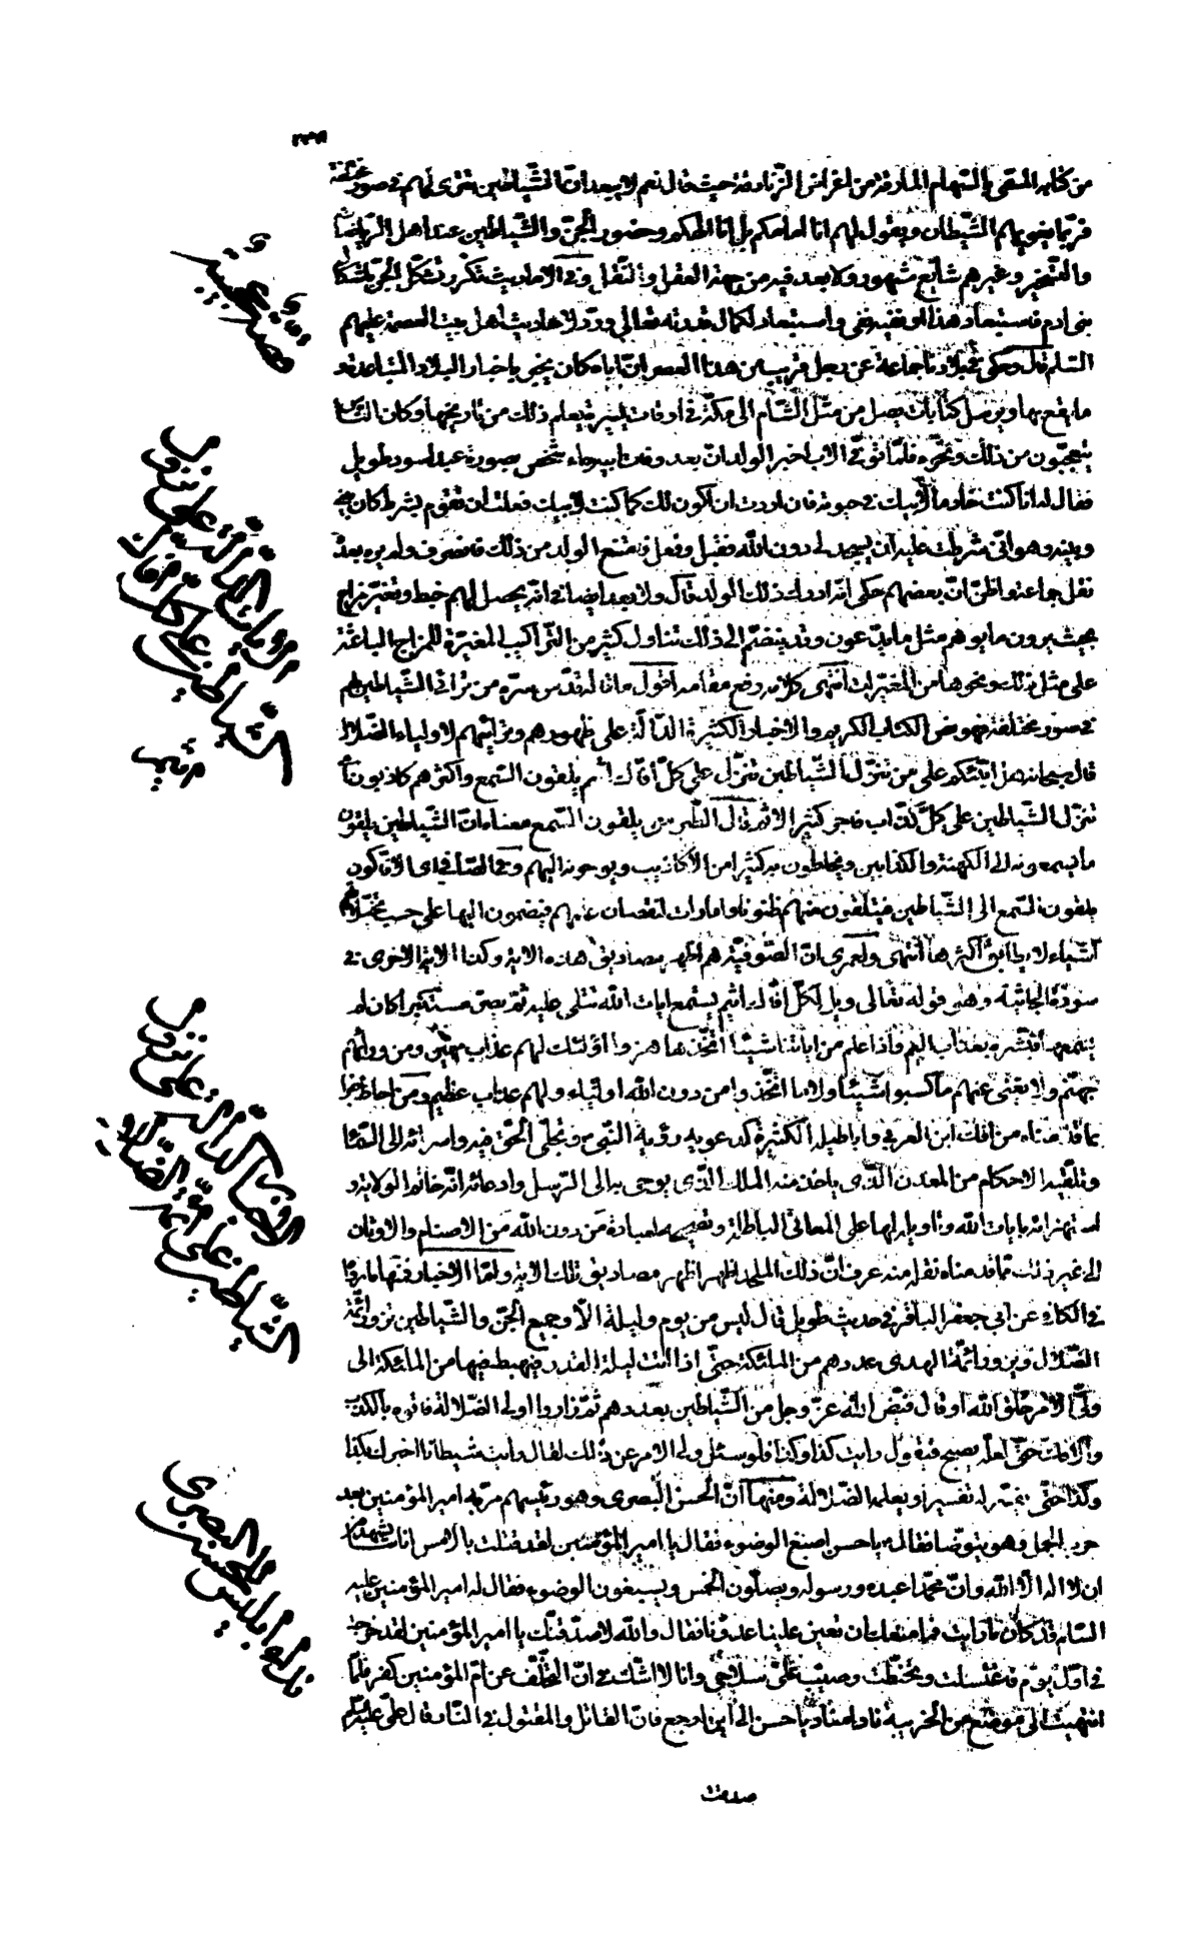 ٢٣٨
من كتابه المسمى بالسهام المارقة من اغراض الزنادقة حيث قال نعم لا يبعد ان الشياطين تترى لهم في صور مختلفة
فربما يغويهم الشيطان ويقول لهم انا امامكم بل انا الهكم وحضور الجن والشياطين عند اهل الرياضات
والتسخير وغيرهم شايع مشهور ولا بعد فيه من جهة العقل والنقل وفي الاحاديث تكرر تشكل الجن باشكال
بني ادم فاستبعاد هذا او نفيه غي واستبعاد لكمال قدرته تعالى ورد لاحاديث اهل بيت العصمة عليهم
السلم قال وحكى في بلادنا جماعة عن رجل قريب من هذا العصر ان اباه كان يخبر باخبار البلاد المتباعدة و
ما يقع بها ويرسل كتابات يصل من مثل الشام الى مكة في اوقات يسيرة يعلم ذلك من تاريخها وكان الناس
يتعجبون من ذلك وتحره فلما توفي الاب اخبر الولد ان بعد وفات ابيه جاء شخص بصورة عبد اسود طويل
فقال له انا كنت خادما لابيك في حيوته فان اردت ان اكون لك كما كنت لابيك فعلت ان تقوم بشرط كان بيني
وبينه وهو اني شرطت عليه ان يسجد لي دون الله فقبل وفعل فامتنع الولد من ذلك فانصرف ولم يره بعد
نقل جماعة واظن ان بعضهم حكى انه ادرك ذلك الولد قال ولا بعد ايضا في انه يحصل لهم خبط وتغير مزاج
بحيث يرون ما يوهم مثل ما يدعون وقد ينضم الى ذلك تناول كثير من التراكيب المغيرة للمزاج الباعثة
على مثل ذلك ونحوها من المغيرات انتهى كلامه رفع مقامه اقول ما قاله قدس سره من ترائي الشياطين لهم
في صور مختلفة فهو ض الكتاب الكريم والاخبار الكثيرة الدالة على ظهورهم وترائيهم لاولياء الضلال
قال سبحانه هل انبئكم على من تنزل الشياطين تنزل على كل افاك اثيم يلقون السمع واكثرهم كاذبون اي
تنزل الشياطين على كل كذاب فاجر كثير الاثم قال الطبرسي يلقون السمع معناه ان الشياطين يلقون
ما يسمعونه الى الكهنة والكذابين ويخلطون به كثيرا من الاكاذيب ويوحونه اليهم وفي الصافي اي الافاكون
يلقون السمع الى الشياطين فيتلقون منهم ظنونا وامارات لنقصان علمهم فيضمون اليها على حسب تخيلاتهم
اشياء لا يطابق اكثرها انتهى ولعمري ان الصوفية هم اظهر مصاديق هذه الاية وكذا الاية الاخرى في
سورة الجاثية وهو قوله تعالى ويل لكل افاك اثيم يسمع ايات الله تتلى عليه ثم يصر مستكبرا كان لم
يسمعها فبشره بعذاب اليم واذا علم من اياتنا شيئا اتخذها هزوا اولئك لهم عذاب مهين ومن ورائهم
جهنم ولا يغني عنهم ما كسبوا شيئا ولا ما اتخذوا من دون الله اولياء ولهم عذاب عظيم ومن احاط خبرا
بما قدمناه من افك ابن العربي واباطيله الكثيرة كدعويه رؤية النبي ص وتجلى الحق فيه واسرائه الى السماء
وتلقيه الاحكام من المعدن الذي ياخذ منه الملك الذي يوحى به الى الرسل وادعائه انه خاتم الولاية و
استهزائه بايات الله وتاويله لها على المعاني الباطلة وتصحيحه لعبادة من دون الله من الاصنام والاوثان
الى غير ذلك مما قدمناه نقله منه عرف ان ذلك الملحد اظهر اظهر مصاديق تلك الاية واما الاخبار فمنها ما روي
في الكافي عن ابي جعفر الباقر في حديث طويل قال ليس من يوم وليلة الا وجميع الجن والشياطين تزور ائمة
الضلال ويزور ائمة الهدى عددهم من الملئكة حتى اذا اتت ليلة القدر فيهبط فيها من الملئكة الى
ولي الامر خلق الله او قال قيض الله عز وجل من الشياطين بعددهم ثم زاروا ولي الضلالة فاتوه بالكذب
والافك حتى لعله يصبح فيقول رايت كذا وكذا فلو سئل ولي الامر عن ذلك لقال رايت شيطانا اخبرك بكذا
وكذا حتى يفسر له تفسيرا ويعلمه الضلالة ومنها ان الحسن البصري وهو رئيسهم مر به امير المؤمنين بعد
حرب الجمل وهو يتوضا فقال له يا حسن اصبغ الوضوء فقال يا امير المؤمنين لقد قتلت بالامس اناسا يشهدون
ان لا اله الا الله وان محمدا عبده ورسوله ويصلون الخمس ويسبغون الوضوء فقال له امير المؤمنين عليه
السلم قد كان ما رايت فما منعك ان تعين علينا عدونا فقال والله لاصدقنك يا امير المؤمنين لقد خرجت
في اول يوم فاغتسلت وتحنطت وصببت علي سلاحي وانا لا اشك في ان التخلف عن ام المؤمنين كفر فلما
انتهيت الى موضع من الخريبة نادا مناد يا حسن الى اين ارجع فان القاتل والمقتول في النار قال علي عليه السلم
صدقت
قصة عجيبة
الروايات الدالة على نزول
الشياطين على كل افاك
مرتب
الاخبار الدالة على نزول
الشياطين على ائمة الضلال
نداء ابليس للحسن البصري